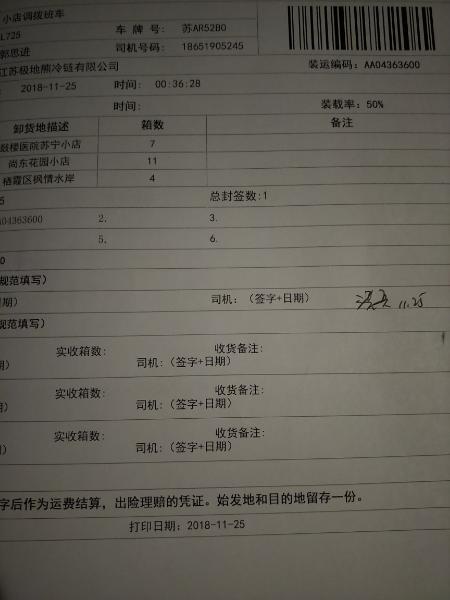 小店调拨班车
L725 车 牌 号: 苏AR52B0
郭思进 司机号码: 18651905245
江苏极地熊冷链有限公司 装运编码: AA04363600
2018-11-25 时间: 00:36:28
时间: 装载率: 50%
卸货地描述 箱数 备注
鼓楼医院苏宁小店 7
尚东花园小店 11
栖霞区枫情水岸 4
5 总封签数:1
A04363600 2. 3.
5. 6.
0
规范填写)
日期) 司机:(签字+日期) 11.25
规范填写)
实收箱数: 收货备注:
) 司机:(签字+日期)
实收箱数: 收货备注:
) 司机:(签字+日期)
实收箱数: 收货备注:
) 司机:(签字+日期)
字后作为运费结算,出险理赔的凭证。始发地和目的地留存一份。
打印日期: 2018-11-25